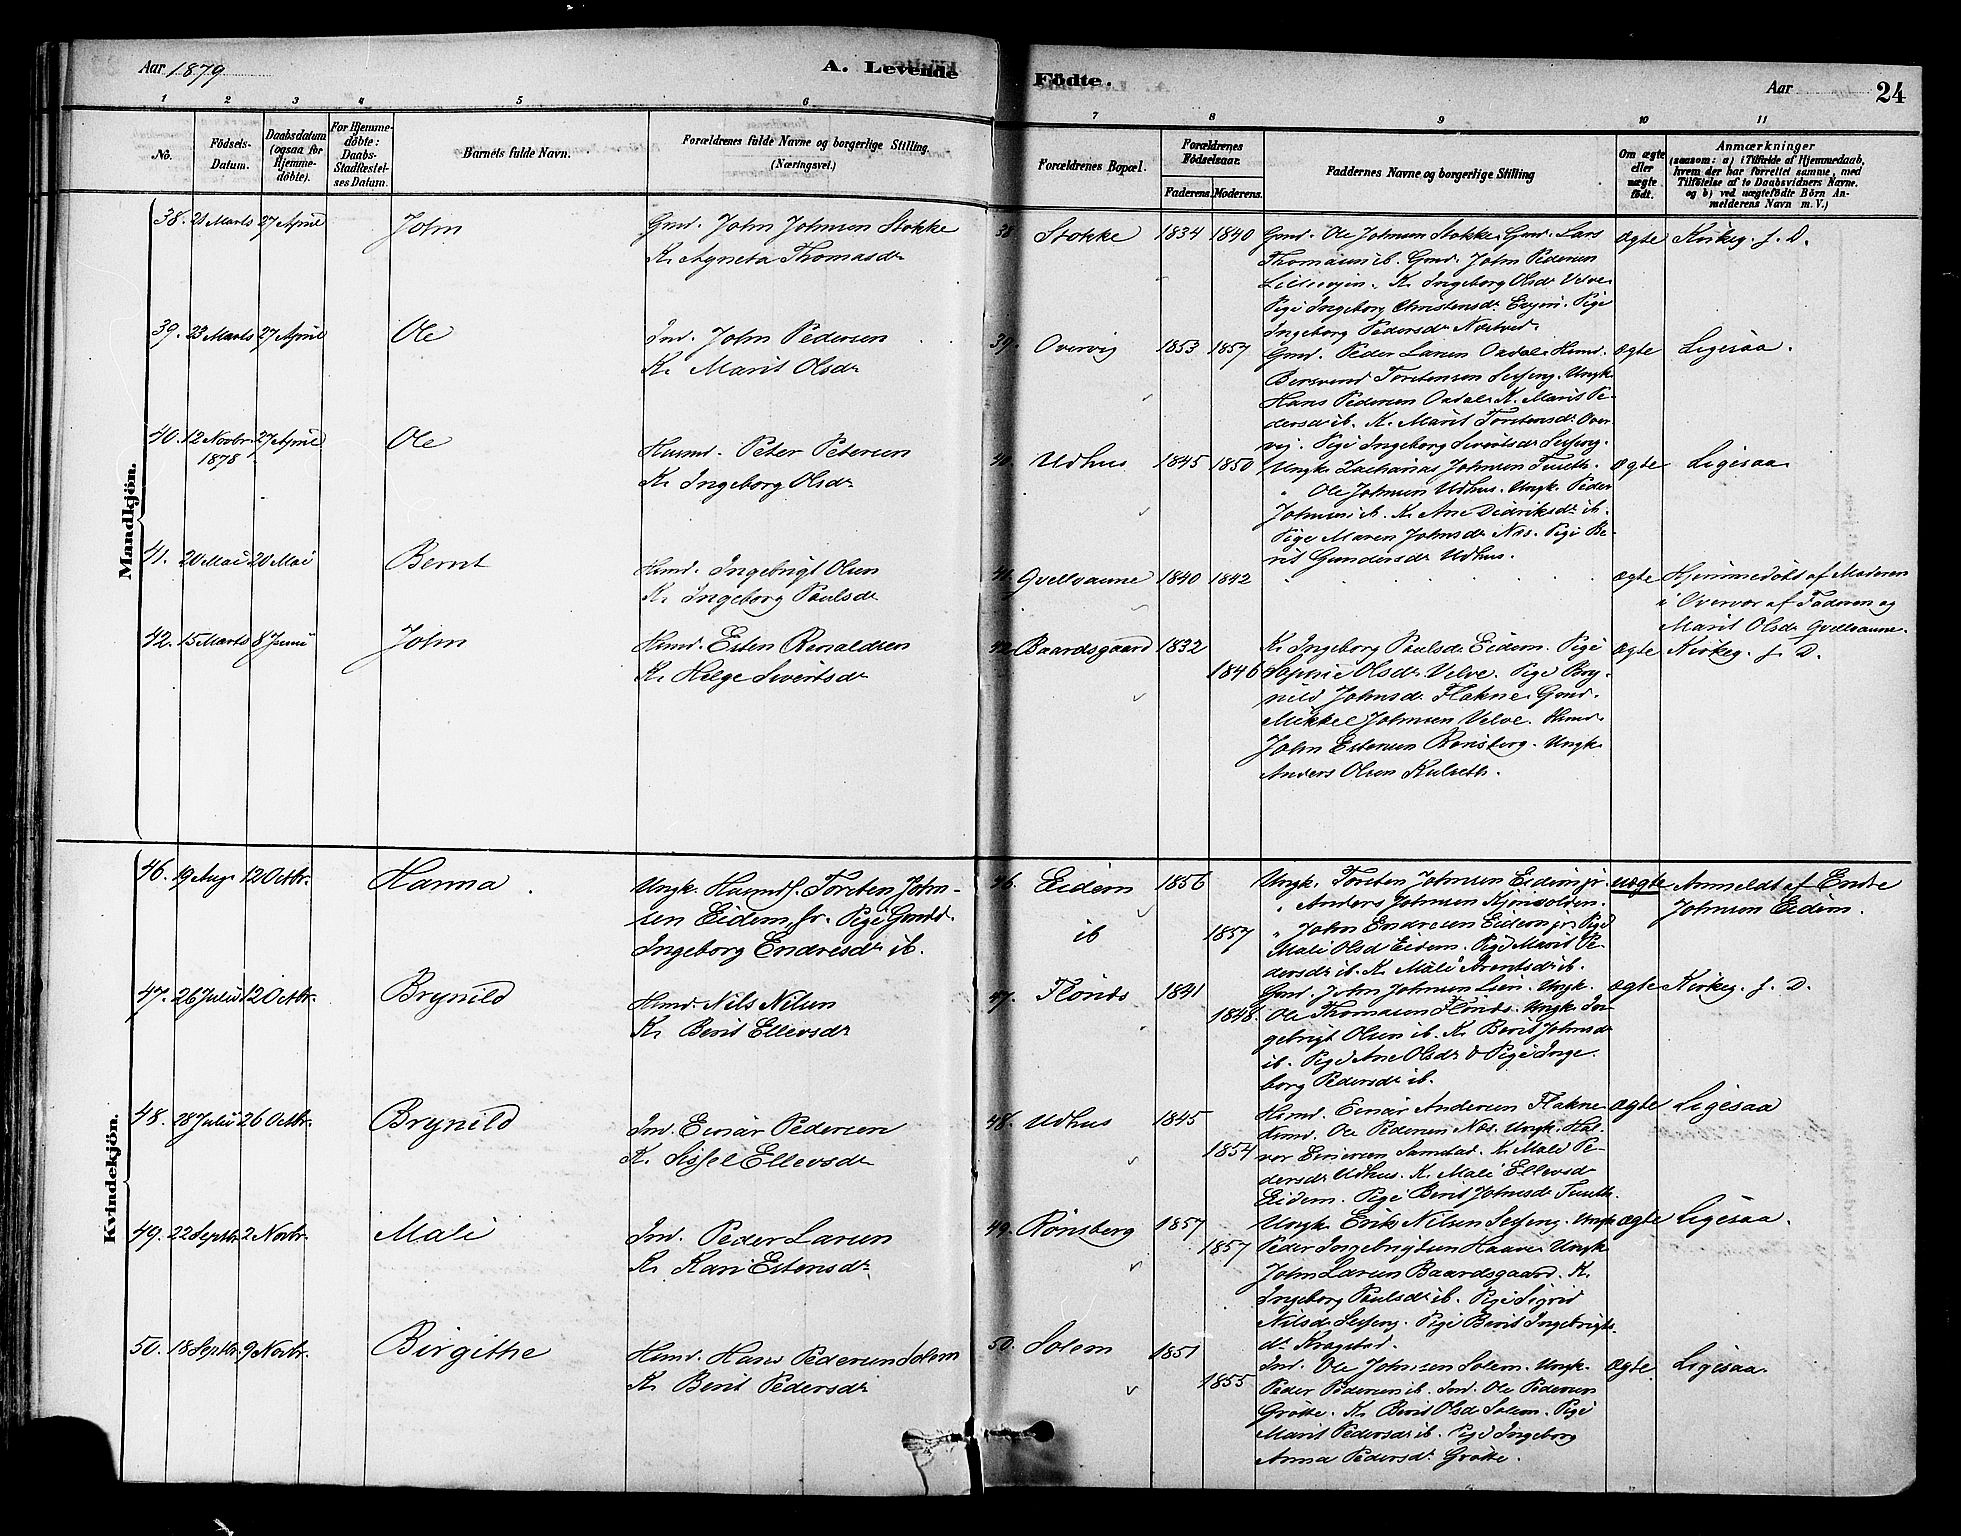 Aar 1879
A. Levende
Födte.
Aar
24
1
2
3
4
5
6
7
8
9
10
11
No.
Födsels-
Datum.
Daabsdatum
(ogsaa for
Hjemme-
döbte).
For Hjemme-
döbte:
Daabs-
Stadfæstel-
ses Datum.
Barnets fulde Navn.
Forældrenes fulde Navne og borgerlige Stilling.
(Næringsvei.)
Forældrenes Bopæl.
Forældrenes
Födselsaar.
Faderens.
Moderens.
Faddernes Navne og borgerlige Stilling
Om ægte
eller
uægte
født.
Anmærkninger
(saasom: a) i Tilfælde af Hjemmedaab,
hvem der har forrettet samme, med
Tilføielse af to Daabsvidners Navne.
og b) ved uægtefødte Börn An-
melderens Navn m. V.)
Mandkjön.
38. 21 Marts 27 April John
Gmd. John Johnsen Stokke
K. Agneta Thomasdr
38 Stokke 1834 1840
Gmd. Ole Johnsen Stokke. Gmd. Lars
Thomasen ib. Gmd. John Pedersen
Lilleevjen. K. Ingeborg Olsdr Velve.
Pige Ingeborg Christensdr Evjen. Pige
Ingeborg Pedersdr Næstved.
Ægte Kirkeg. f. D.
39. 23 Marts 27 April Ole
Ind. John Pedersen
K. Marit Olsdr
39. Overvig 1853 1857
Gmd. Peder Larsen Oxdal. Husmd.
Bersvend Torstensen Sesseng. Ungk.
Hans Pedersen Oxdal. K. Marit Pe-
dersdr ib. K. Marit Torstensdr Over-
vig. Pige Ingeborg Sivertsdr Sesseng.
Ægte Ligesaa.
40. 12 Novbr. 27 April Ole
1878
Husmd. Peter Petersen
K. Ingeborg Olsdr
40. Udhus 1845 1850
Ungk. Zacharias Johnsen Tuseth.
" Ole Johnsen Udhus. Ungk. Peder
Johnsen ib. K. Ane Didriksdr ib.
Pige Maren Johnsdr Næs. Pige Be-
rit Gundersdr Udhus.
Ægte Ligesaa
41. 20 Mai 20 Mai Bernt
Husmd. Ingebrigt Olsen
K. Ingeborg Paulsdr
41. Qvelloaune 1840 1842
Ægte Hjemmedöbt af Moderen
i Overvær af Faderen og
Marit Olsdr Qvelloaune.
42. 15 Marts 8 Juni John
Husmd. Esten Ronaldsen
K. Helge Sivertsdr
42. Baardsgaard 1832
1846
K. Ingeborg Paulsdr Eidem. Pige
Sophie Olsdr Velve. Pige Bry-
nild Johnsdr Flakne. Gmd.
Mikkel Johnsen Velve. Husmd.
John Estensen Rönsberg. Ungk.
Anders Olsen Kulseth.
Ægte Kirkeg. f. D.
Kvindekjön.
46. 19 Aug. 12 Octbr. Hanna.
Ungk. Husmdf. Torsten John-
sen Eidem jr. Pige Gmdd.
Ingeborg Endresdr ib.
46. Eidem 1856
ib 1857
Ungk. Torsten Johnsen Eidem jr.
" Anders Johnsen Kjönsvolden.
" John Endresen Eidem jr. Pige
Mali Olsdr Eidem. Pige Marit Pe-
dersdr ib. K. Mali Arentsdr ib.
Uægte Anmeldt af Endre
Johnsen Eidem.
47. 26 Juli 12 Octbr. Brynild
Husmd. Nils Nilsen
K. Berit Ellevsdr
47. Flönds 1841
1848.
Gmd. John Johnsen Lien. Ungk.
Ole Thomasen Flönds. Ungk. In-
gebrigt Olsen ib. K. Berit Johnsdr
ib. Pige Ane Olsdr & Pige Inge-
borg Pedersdr ib.
Ægte Kirkeg. f. D.
48. 28 Juli 26 Octbr. Brynild
Ind. Einar Pedersen
K. Sissel Ellevsdr
48. Udhus 1845
1854
Husmd. Einar Andersen Flakne
Husmd. Ole Pedersen Næs. Ungk. Hal-
vor Einersen Samstad. K. Mali Pe-
dersdr Udhus. K. Mali Ellevsdr
Eidem. Pige Berit Johnsdr Tuseth.
Ægte Ligesaa
49. 22 Septbr. 2 Novbr. Mali
Ind. Peder Larsen
K. Kari Estensdr
49. Rönsberg 1857
1857
Ungk. Erik Nilsen Sesseng. Ungk.
Peder Ingebrigtsen Haave. Ungk.
John Larsen Baardsgaard. K.
Ingeborg Paulsdr ib. Pige Sigrid
Nilsdr Sesseng. Pige Berit Ingebrigts-
dr Kragstad.
Ægte Ligesaa.
50. 18 Septbr. 9 Novbr. Birgithe
Husmd. Hans Pedersen Solem
K. Berit Pedersdr
50. Solem 1851
1855
Ind. Ole Johnsen Solem. Ungk.
Peder Pedersen ib. Ind. Ole Pedersen
Grötte. K. Berit Olsdr Solem. Pige
Marit Pedersdr ib. Pige Ingeborg
Anna Pedersdr Grötte.
Ægte Ligesaa.